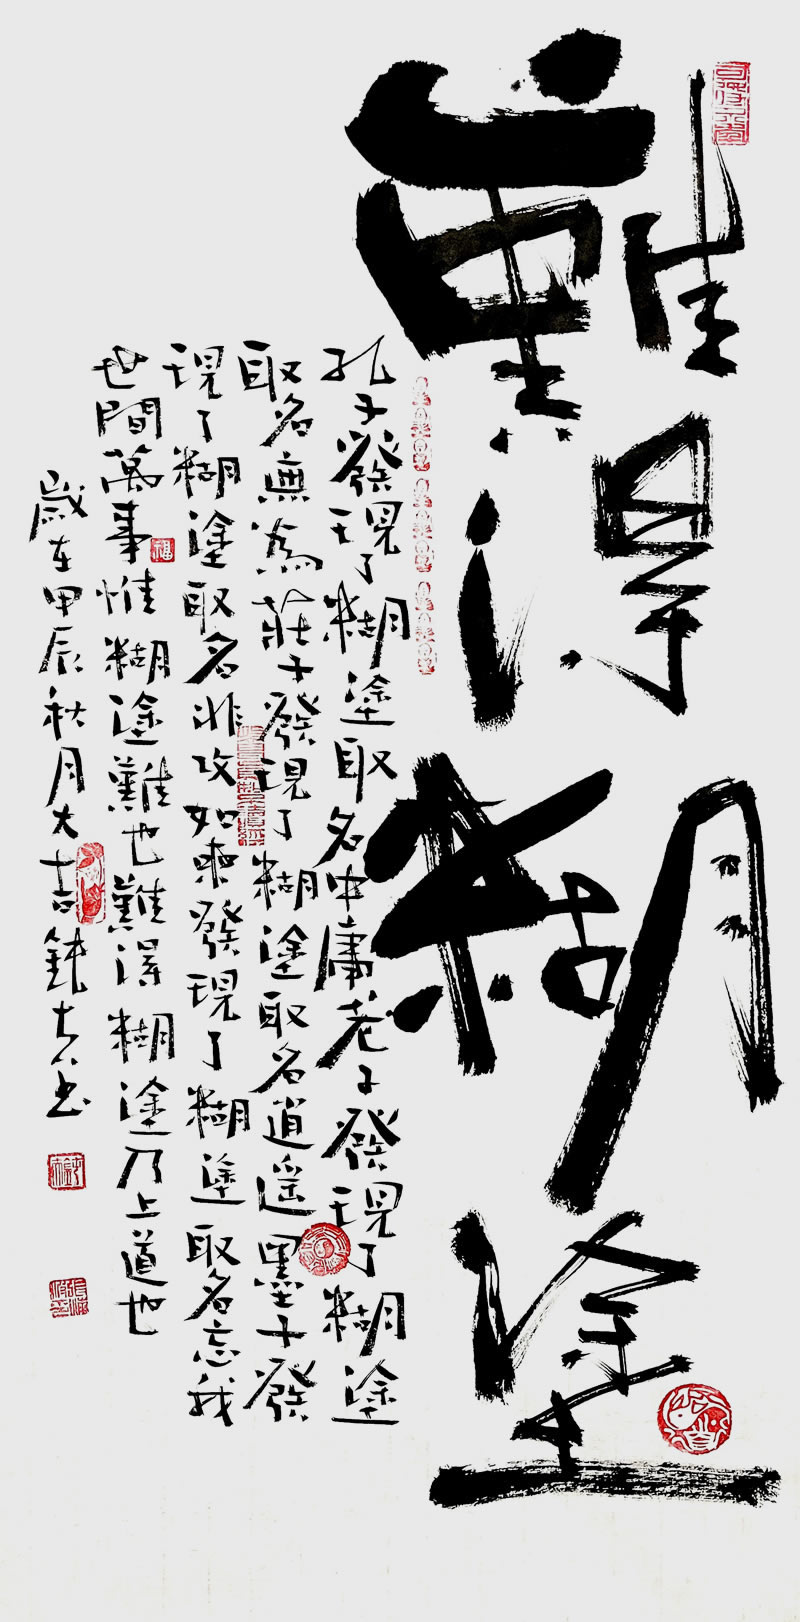 難得糊塗
孔子發現了糊塗取名中庸老子發現了糊塗
取名無為莊子發現了糊塗取名逍遥墨子發
現了糊塗取名非攻如來發現了糊塗取名忘我
世間萬事惟糊塗難也難得糊塗乃上道也
歲在甲辰秋月大吉鈍夫書